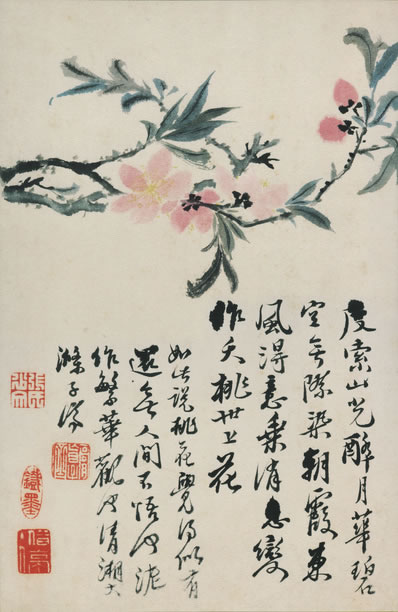 度索山光醉月華碧
空無際染朝霞東
風得意乘消息變
作夭桃世上花
如此說桃花覺得似有
還無人間不悟何泥
作繁華觀也清湘大
滌子